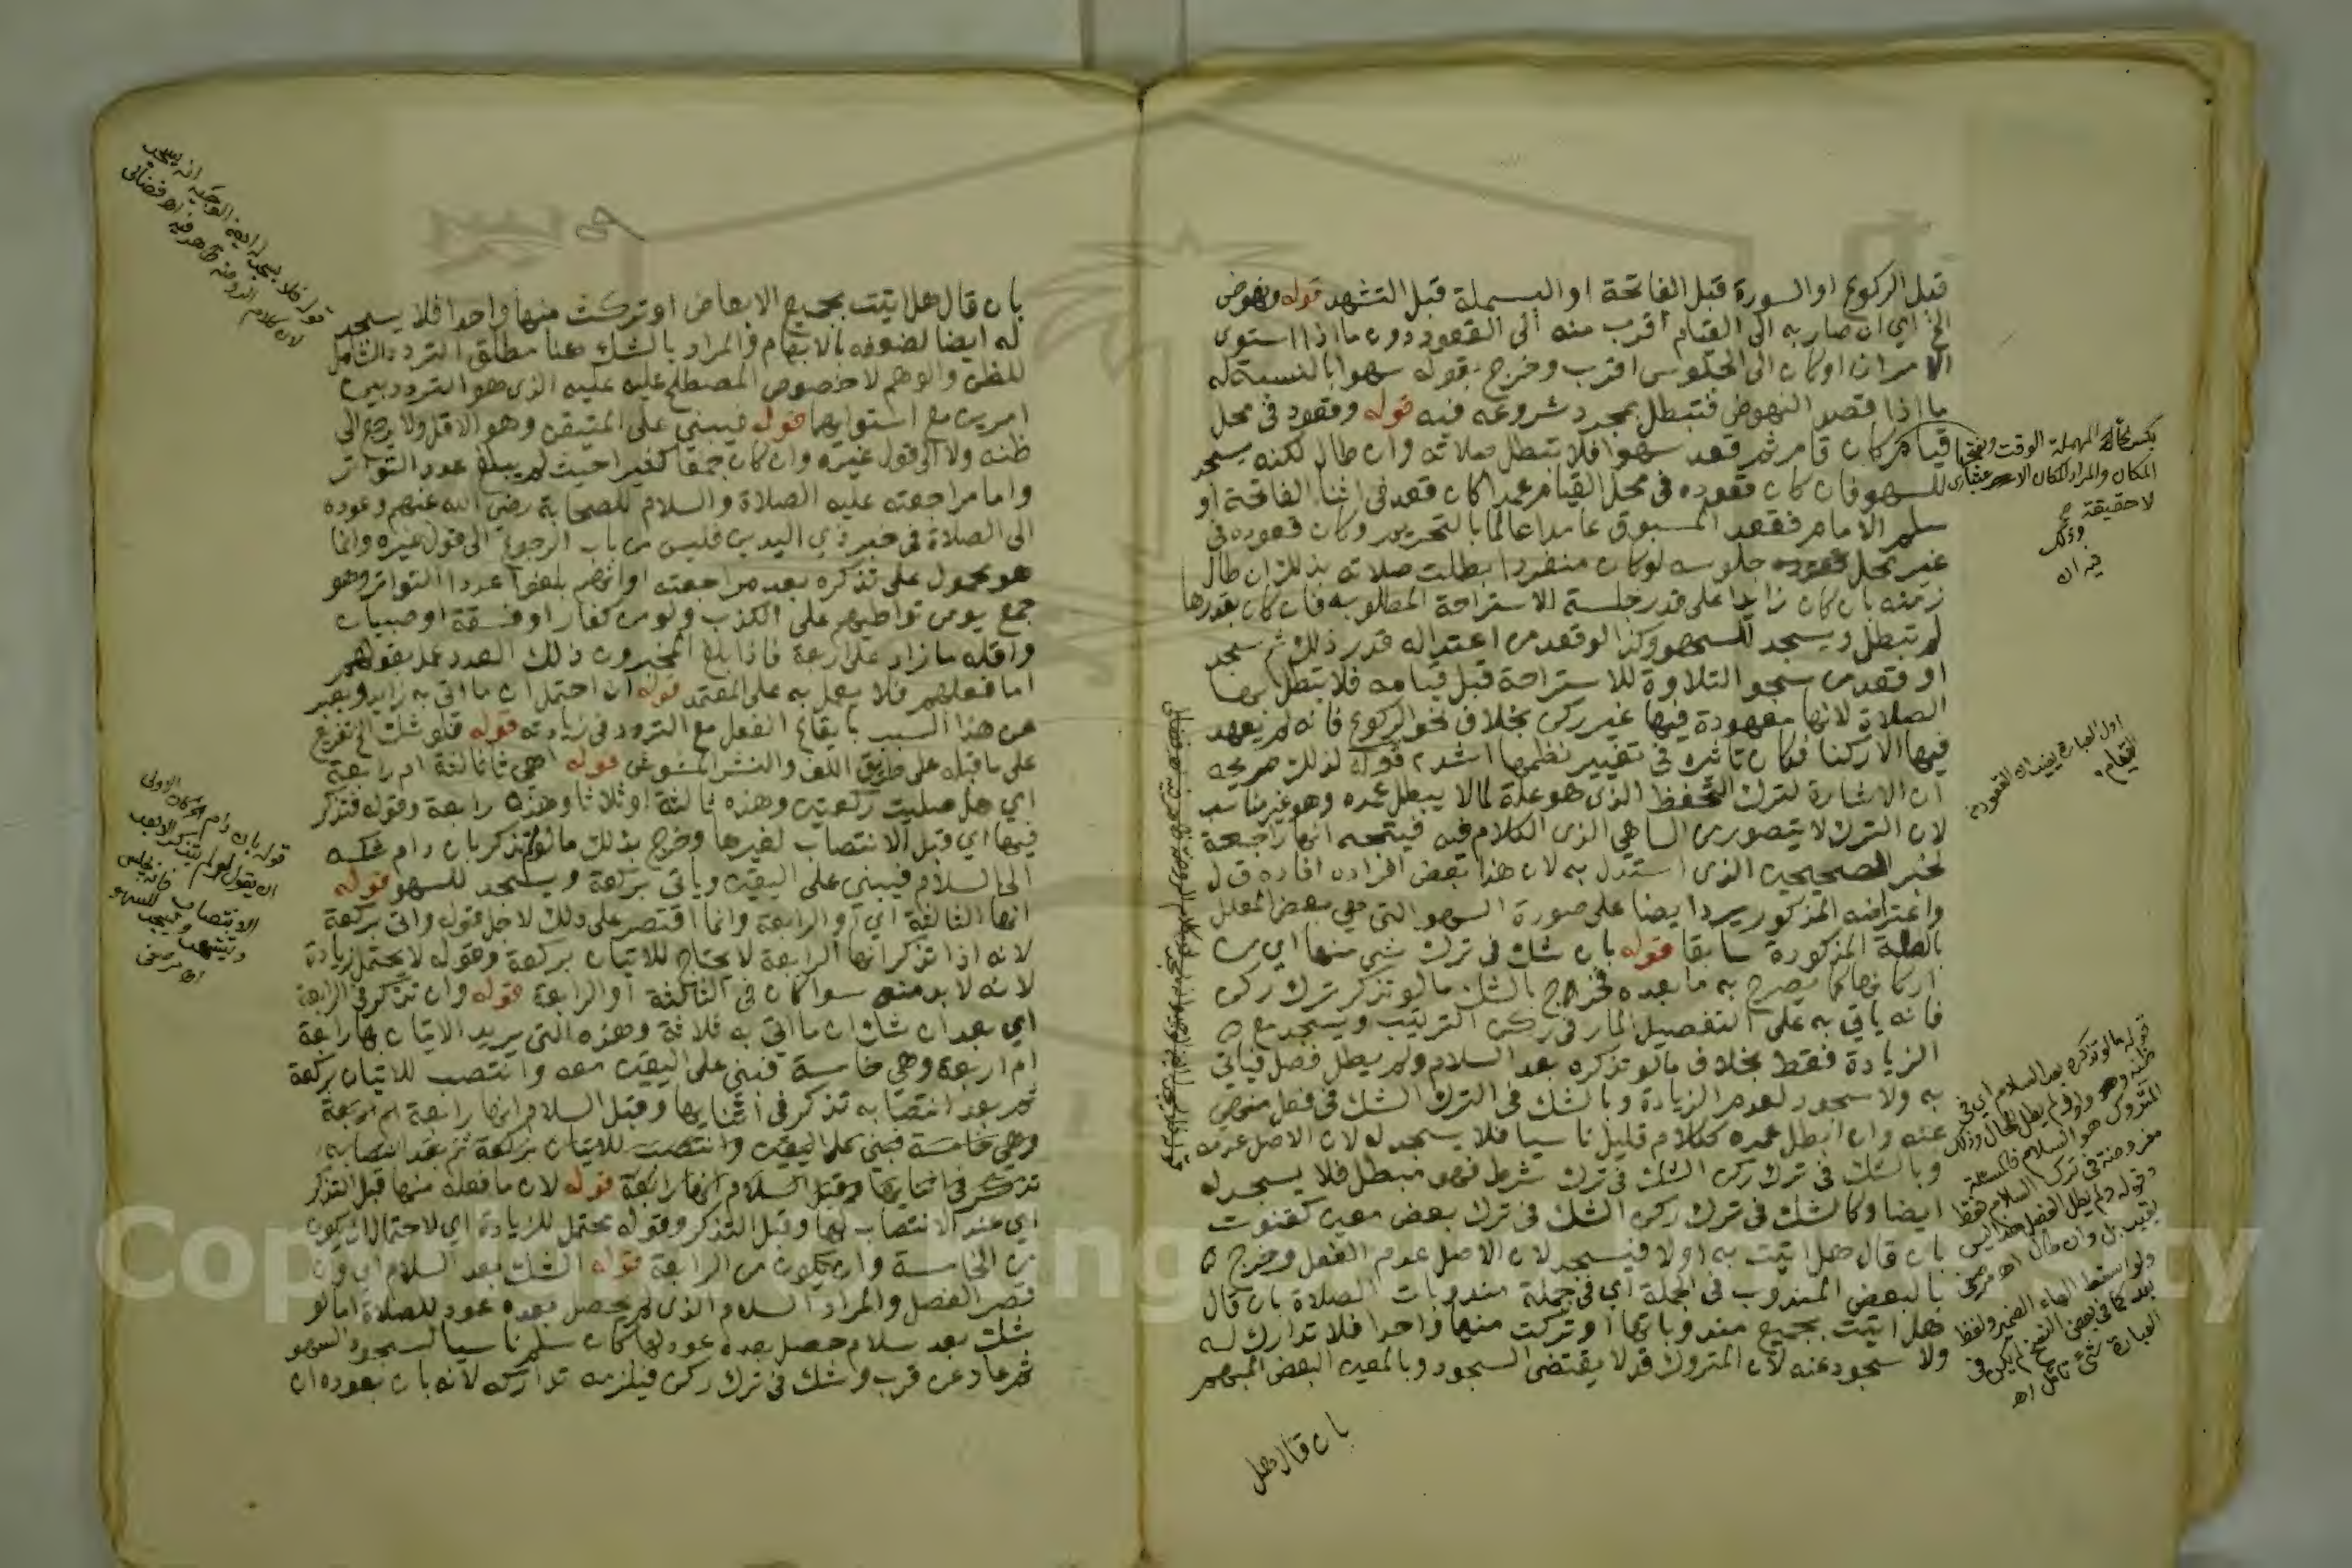 قبل الركوع او السورة قبل الفاتحة او البسملة قبل التشهد قوله ونهوض
الخ اي ان صار به الى القيام اقرب منه الى القعود دون ما اذا استوى
الامران او كان الى الجلوس اقرب وخرج بقوله سهوا بالنسبة له
ما اذا قصد النهوض فتبطل بمجرد شروعه فيه قوله وقعود في محل
قيام كان قام ثم قعد سهوا فلا تبطل صلاته وان طال لكنه يسجد
للسهو فان كان قعوده في محل القيام عمدا كان قعد في اثنا الفاتحة او
سلم الامام فقعد المسبوق عامدا عالما بالتحريم وكان قعوده في
غير محل جلوسه لو كان منفردا بطلت صلاته بذلك ان طال
زمنه بان كان زايدا على قدر جلسة الاستراحة المطلوبه فان كان بقدرها
لم تبطل ويسجد للسهو وكذا لو قعد من اعتداله قدر ذلك ثم سجد
او قعد من سجو التلاوة للاستراحة قبل قيامه فلا تبطل بها
الصلاة لانها معهودة فيها غير ركن بخلاف نحو الركوع فانه لم يعهد
فيها الا ركنا فكان تاثيره في تغيير نظمها اشد قوله لذلك صريحه
ان الاشارة لترك التحفظ الذي هو علة لما لا يبطل عمده وهو غير مناسب
لان الترك لا يتصور من الساهي الذي الكلام فيه فيتجه انها راجعة
لخبر الصحيحين الذي استدل به لان هذا بعض افراده افاده ق ل
واعتراضه المذكور يرد ايضا على صورة السهو التي هي بعض المعلل
بالعلة المذكورة سابقا قوله بان شك في ترك شي منها اي من
اركانها كما يصرح به ما بعده فخرج بالشك ما لو تذكر ترك ركن
فانه ياتي به على التفصيل المار في ركن الترتيب ويسجد مع
الزيادة فقط بخلاف ما لو تذكره بعد السلام ولم يطل فصل فياتي
به ولا سجود لعدم الزيادة وبالشك في الترك الشك في فعل منهي
عنه وان ابطل عمده ككلام قليل ناسيا فلا يسجد له لان الاصل عدمه
وبالشك في ترك ركن الشك في ترك شرط فهو مبطل فلا يسجد له
ايضا وكالشك في ترك ركن الشك في ترك بعض معين كقنوت
بان قال هل اتيت به اولا فيسجد لان الاصل عدم الفعل وخرج
بالبعض المندوب في الجملة اي في جملة مندوبات الصلاة بان قال
هل اتيت بجميع مندوباتها او تركت منها واحدا فلا تدارك له
ولا سجود عنه لان المتروك قد لا يقتضي السجود وبالمعين البعض المبهم
بان قال هل
بكسر الحاء المهملة الوقت وبفتحها
المكان والمراد المكان الاعتباري
لا حقيقة
وذلك
فيه ان
القيام
قوله ما لو تذكره بعد السلام اي في
المتروك هو السلام فالمسئلة
مفروضة في ترك السلام فقط
وقوله ولم يطل الفصل هذا ليس
بقيد بل وان طال اه مرحومي
ولو اسقط الهاء الضمير ولفظ
بعد كما في بعض النسخ لم يكن في
العبارة شئ تامل اه
بان قال هل اتيت بجميع الابعاض او تركت منها واحدا فلا يسجد
له ايضا لضعفه بالابهام والمراد بالشك هنا مطلق التردد الشامل
للظن والوهم لا خصوص المصطلح عليه الذي هو التردد بين
امرين مع استوايهما قوله فيبني على المتيقن وهو الاقل ولا يرجع الى
ظنه ولا الى قول غيره وان كان جمعا كثيرا حيث لم يبلغ عدد التواتر
واما مراجعته عليه الصلاة والسلام للصحابة رضي الله عنهم وعوده
الى الصلاة في خبر ذي اليدين فليس من باب الرجوع الى قول غيره وانما
هو محمول على تذكره بعد مراجعته او انهم بلغوا عدد التواتر وهو
جمع يومن تواطيهم على الكذب ولو من كفار او فسقة او صبيان
واقله ما زاد على اربعة فاذا بلغ المخبرون ذلك العدد عمل بقولهم
اما فعلهم فلا يعمل به على المعتمد قوله ان احتمل ان ما اتى به زايد ويعبر
عن هذا السبب بايقاع الفعل مع التردد في زيادته قوله فلو شك الخ تفريع
على ما قبله على طريق اللف والنشر المشوش قوله اهي ثالثة ام رابعة
اي هل صليت ركعتين وهذه ثالثة او ثلاثا وهذه رابعة وقوله فتذكر
فيها اي قبل الانتصاب لغيرها وخرج بذلك ما لو لم يتذكر بان دام شكه
الى السلام فيبني على اليقين وياتي بركعة ويسجد للسهو قوله
انها الثالثة اي او الرابعة وانما اقتصر على ذلك لاجل قوله واتى بركعة
لانه اذا تذكر انها الرابعة لا يحتاج للاتيان بركعة وقوله لا يحتمل زيادة
لانه لا بد منه سوا كان في الثالثة او الرابعة قوله وان تذكر في الرابعة
اي بعد ان شك ان ما اتى به ثلاثة وهذه التي يريد الاتيان بها رابعة
ام اربعة وهي خامسة فبنى على اليقين معه وانتصب للاتيان بركعة
ثم بعد انتصابه تذكر في اثنايها وقبل السلام انها رابعة ام اربعة
وهي خامسة فبنى على اليقين وانتصب للاتيان بركعة ثم بعد انتصابه
تذكر في اثنايها وقبل السلام انها رابعة قوله لان ما فعله منها قبل التذكر
اي عند الانتصاب لها وقبل التذكر وقوله محتمل للزيادة اي لاحتمال ان يكون
من الخامسة وان يكون من الرابعة قوله الشك بعد السلام اي وان
قصر الفصل والمراد السلام الذي لم يحصل بعده عود للصلاة اما لو
شك بعد سلام حصل بعده عود لها كان سلم ناسيا لسجود السهو
ثم عاد عن قرب وشك في ترك ركن فيلزمه تداركه لانه بان بعوده ان
قوله فلا يسجد له ايضا الوجيه انه يسجد
لان كلام الروضة ظاهر فيه اه فضالي
قوله بان دام
ان يقول لو لم يتذكر الا بعد
الانتصاب فانه يجلس
ويتشهد ويسجد للسهو